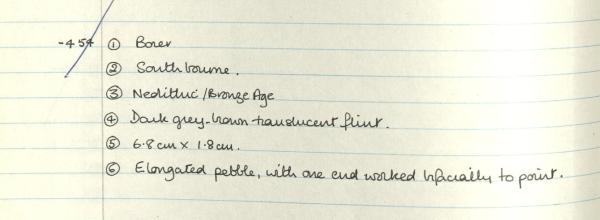 -454 ① Borer
② Southbourne.
③ Neolithic/Bronze Age
④ Dark grey-brown translucent flint.
⑤ 6.8cm x 1.8cm.
⑥ Elongated pebble, with one end worked bifacially to point.